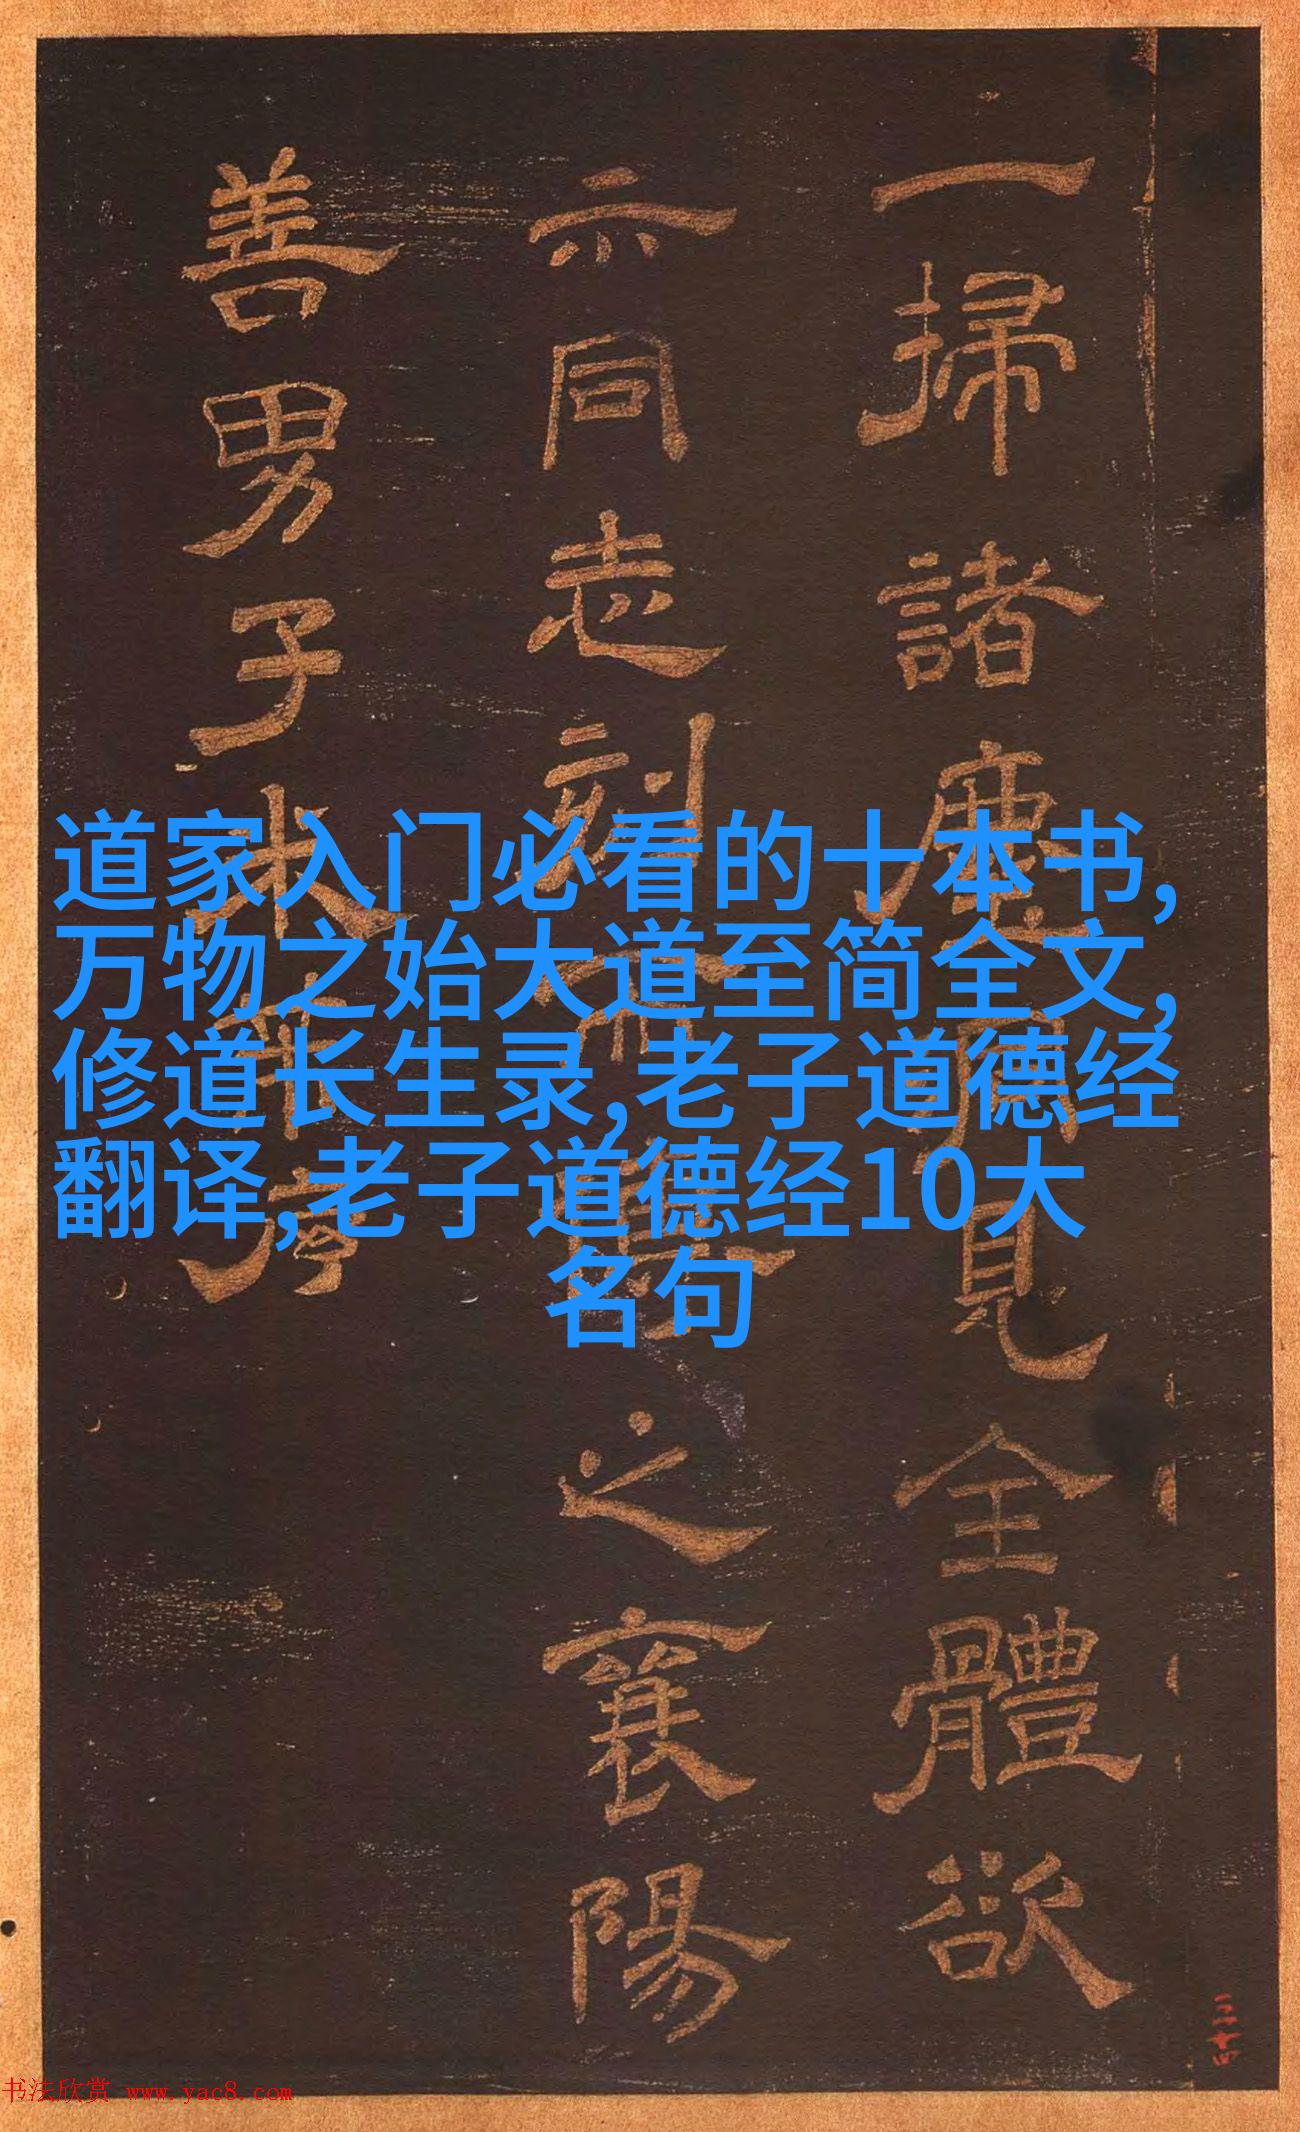 一掃諸塵
見全體欲
示同志刻
之襄陽
善男子
道家入门必看的十本书,
万物之始大道至简全文,
修道长生录,老子道德经
翻译,老子道德经10大
名句
三十四
书法欣赏 www.yac8.com